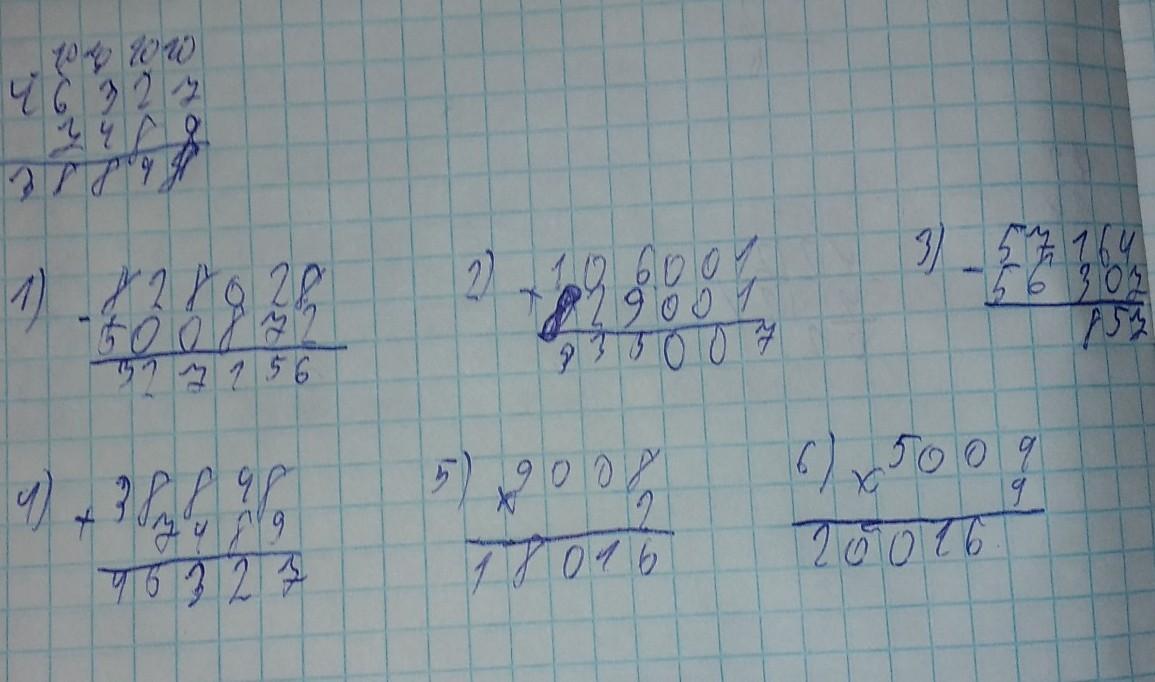 10 10 10 10
4 6 3 2 7
7 4 8 9
3 8 8 4 8
1) - 8 2 8 0 2 8
5 0 0 8 7 2
3 2 7 1 5 6
2) + 1 0 6 0 0 1
8 2 9 0 0 1
9 3 5 0 0 7
3) - 5 7 1 6 4
5 6 3 0 7
8 5 7
4) + 3 8 8 4 8
7 4 8 9
4 6 3 2 7
5) x 9 0 0 8
2
1 8 0 1 6
6) x 5 0 0 4
4
2 0 0 1 6